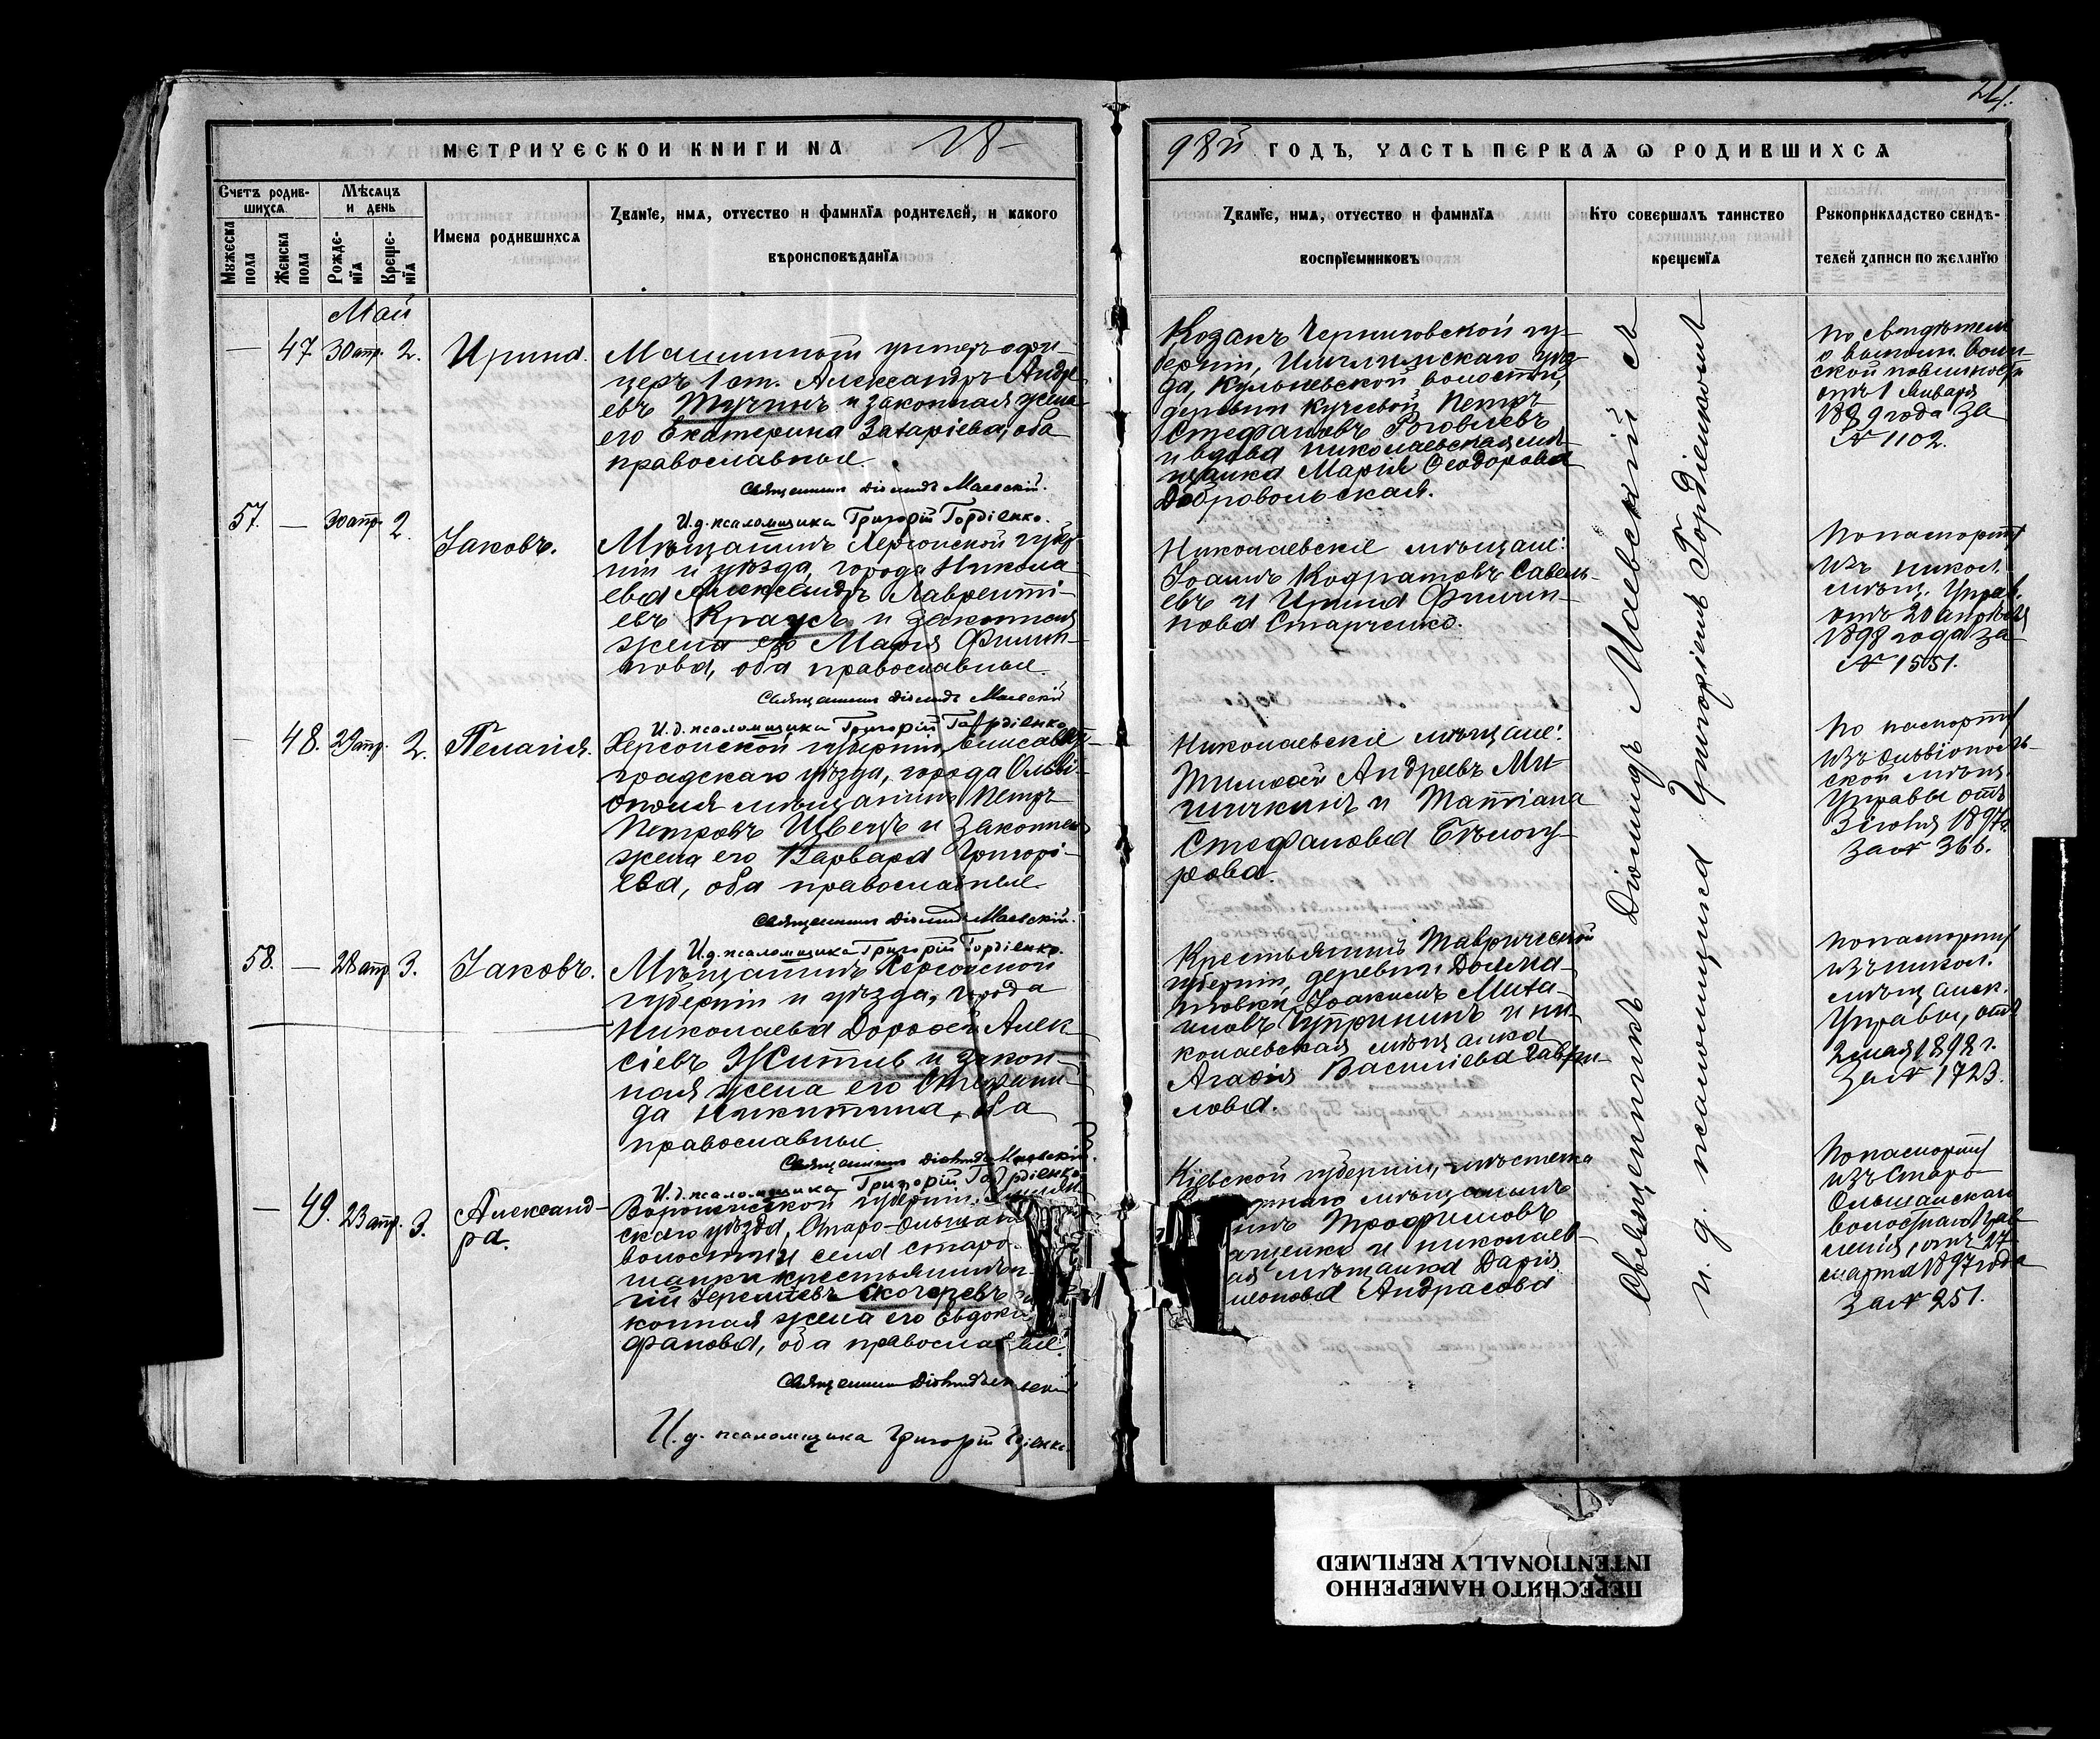 24.
МЕТРИЧЕСКОЙ КНИГИ НА 18-
98й ГОДЪ, ЧАСТЬ ПЕРВАЯ Ѡ РОДИВШИХСЯ
Счетъ родив-
шихся
Мѣсяцъ
и день
Мужеска
пола
Женска
пола
Рожде-
нїя
Креще-
нїя
Имена родившихся
Званїе, имя, отчество и фамилїя родителей, и какого
вѣроисповѣданїя
Званїе, имя, отчество и фамилїя
воспрїемниковъ
Кто совершалъ таинство
крещенїя
Рукоприкладство свидѣ-
телей записи по желанїю
Май
— 47 30 апр. 2. Ирина.
Машинный унтеръ-офи-
церъ 1 ст. Александръ Андре
евъ Тучинъ и законная жена
его Екатерина Захаріева, оба
православные.
Священникъ Діомидъ Маевскій.
И.д. псаломщика Григорій Гордіенко.
Козакъ Черниговской гу-
берніи, уѣз-
да, волости,
деревни Кучевой Петръ
Стефановъ Роговецъ
и вдова николаевская мѣ-
щанка Марія Ѳеодорова
Добровольская.
По свидѣтел
о выполн. Воин-
ской повинности
отъ 1 Января
года за
№ 1102.
57. — 30 апр. 2. Іаковъ.
Мѣщанинъ Херсонской губер
ніи и уѣзда, города Никола
ева Александръ Лавренті-
евъ Краусъ и законная
жена его Марія Филип-
пова, оба православные.
Священникъ Діомидъ Маевскій
И.д. псаломщика Григорій Гордіенко
Николаевскіе мѣщане:
Іоаннъ Кодратовъ Савель-
евъ и Ирина Филип-
пова Старченко.
По паспорту
изъ никол.
мѣщ. Управ.
отъ 20 апрѣля
1898 года за
№ 1551.
— 48. 29 апр. 2. Пелагія.
Херсонской губерніи Елисавет-
градскаго уѣзда, города Ольві-
ополя мѣщанинъ Петръ
Петровъ Швецъ и законная
жена его Варвара Григорі-
ева, оба православные.
Священникъ Діомидъ Маевскій.
И.д. псаломщика Григорій Гордіенко.
Николаевскіе мѣщане:
Тимоѳей Андреевъ Ми-
шичкинъ и Татіана
Стефанова Бѣлогу-
рова.
По паспорту
изъ Ольвіополь-
ской мѣщ.
Управы отъ
3 іюня 1897г.
за № 366.
58. — 28 апр. 3. Іаковъ.
Мѣщанинъ Херсонской
губерніи и уѣзда, города
Николаева Дороѳей Алек-
сіевъ Житие и закон-
ная жена его Стефани-
да Никитина, оба
православные.
Священникъ Діомидъ Маевскій.
И.д. псаломщика Григорій Гордіенко.
Крестьянинъ Таврической
губерніи, деревни Долма-
товки, Іоакимъ Миха-
иловъ Чупринъ и ни-
колаевская мѣщанка
Агаѳія Васильева Гаври-
лова.
По паспорту
изъ никол.
мѣщанск.
Управы, отъ
2 мая 1898 г.
за № 1723.
— 49. 23 апр. 3. Александ-
ра.
Воронежской губерніи,
скаго уѣзда, Старо-Ольшан
волости и села Старо-
шанки крестьянинъ
гій Іереміевъ Скочеревъ
конная жена его Евдокі
фанова, оба православные.
Священникъ Діомидъ
И.д. псаломщика Григорій
Кіевской губерніи, мѣстечка
мѣщанинъ
Трофимовъ
и николаев-
ая мѣщанка Дарія
Андрасова
По паспорту
изъ Старо-
Ольшанскаго
волостного Прав
ленія, отъ 27
марта 1897 года
за № 251.
Священникъ Діомидъ Маевскій съ
и. д. псаломщика Григоріемъ Гордіенкомъ
ПЕРЕСНЯТО НАМЕРЕННО
INTENTIONALLY REFILMED